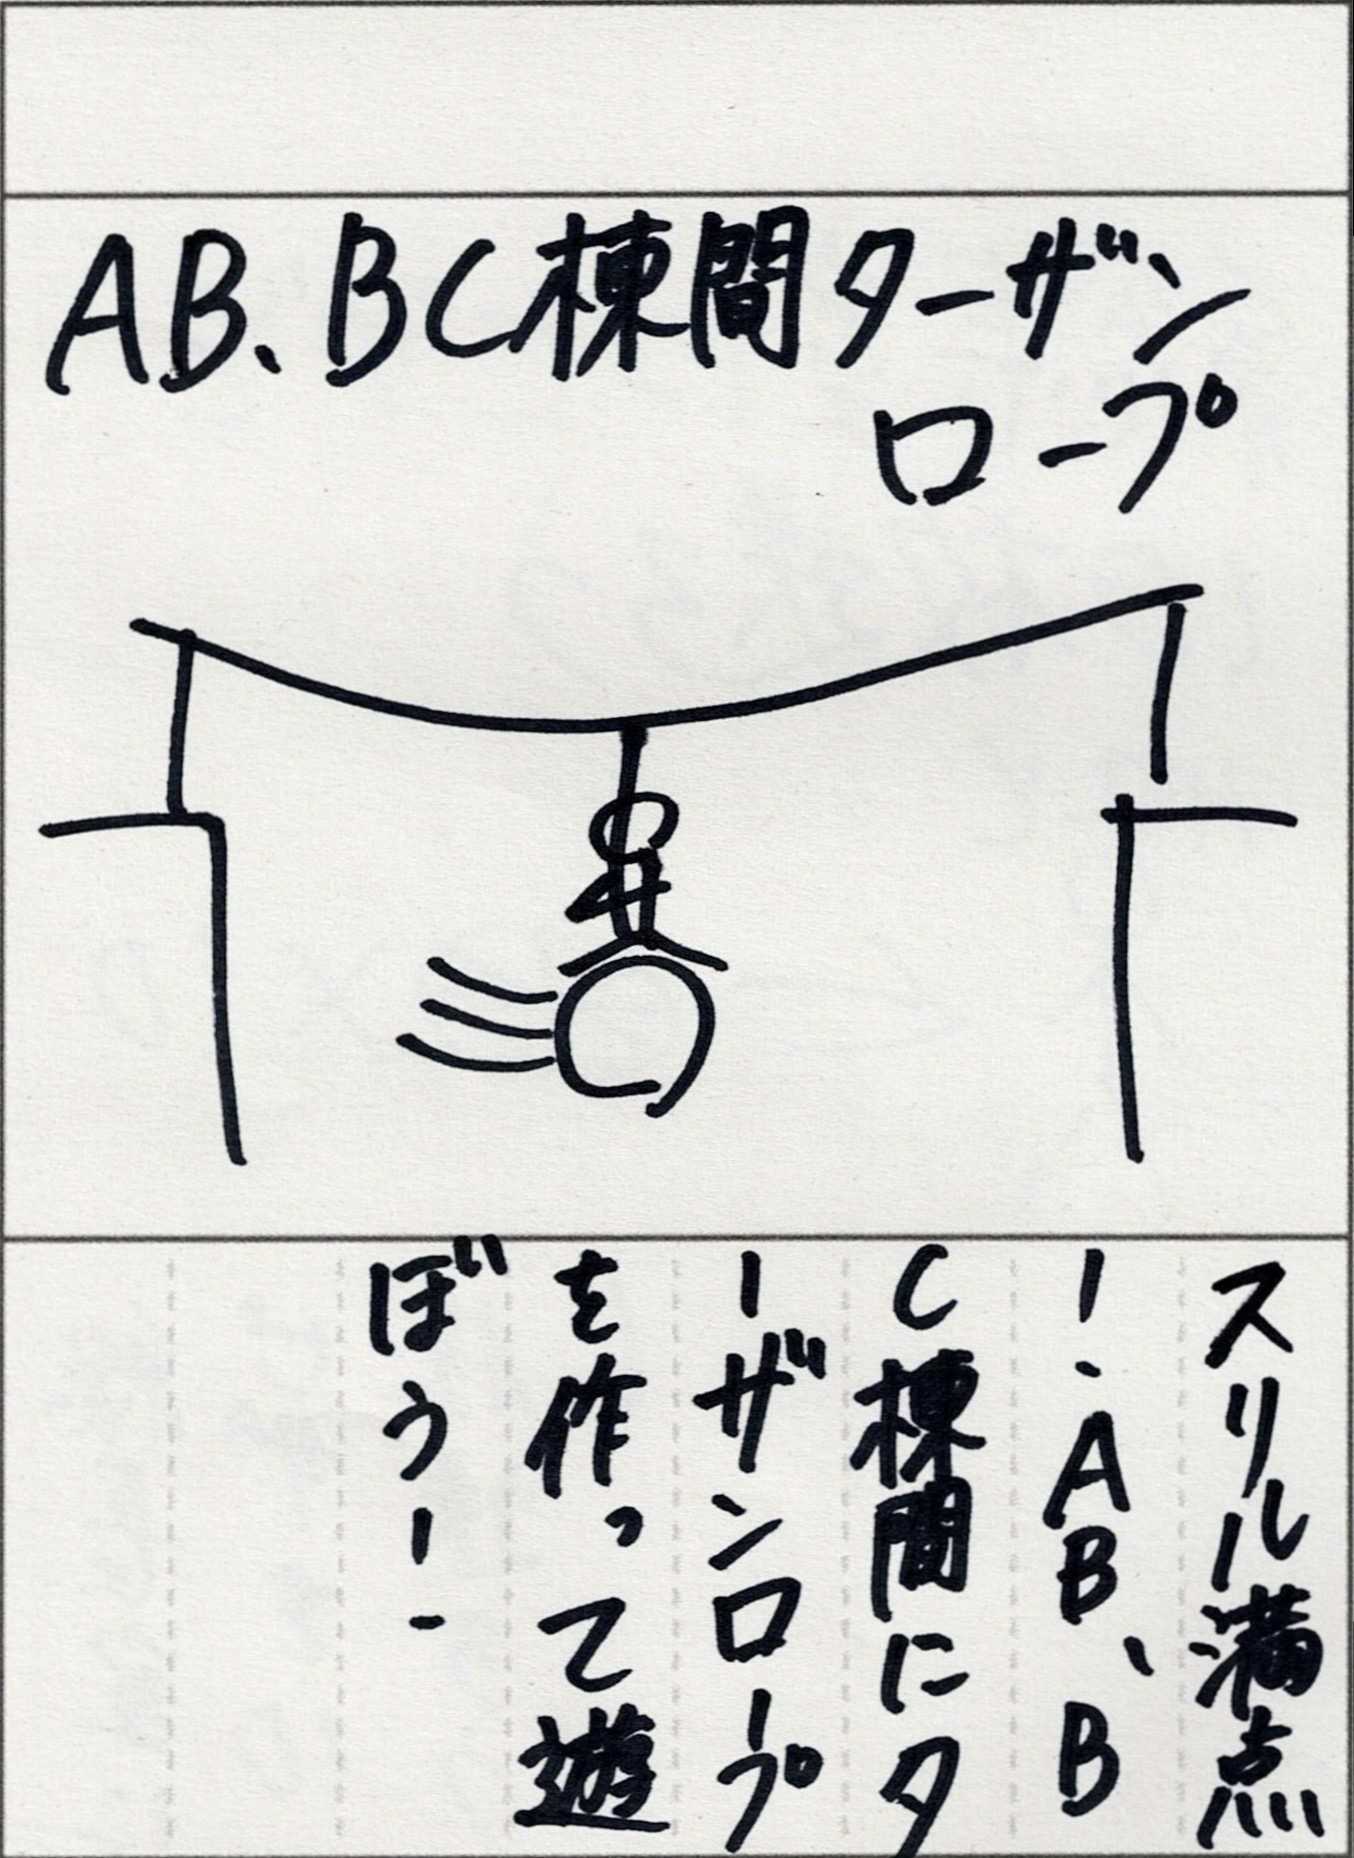 AB、BC棟間ターザン
ロープ
スリル満点
！AB、B
C棟間にタ
ーザンロープ
を作って遊
ぼう！